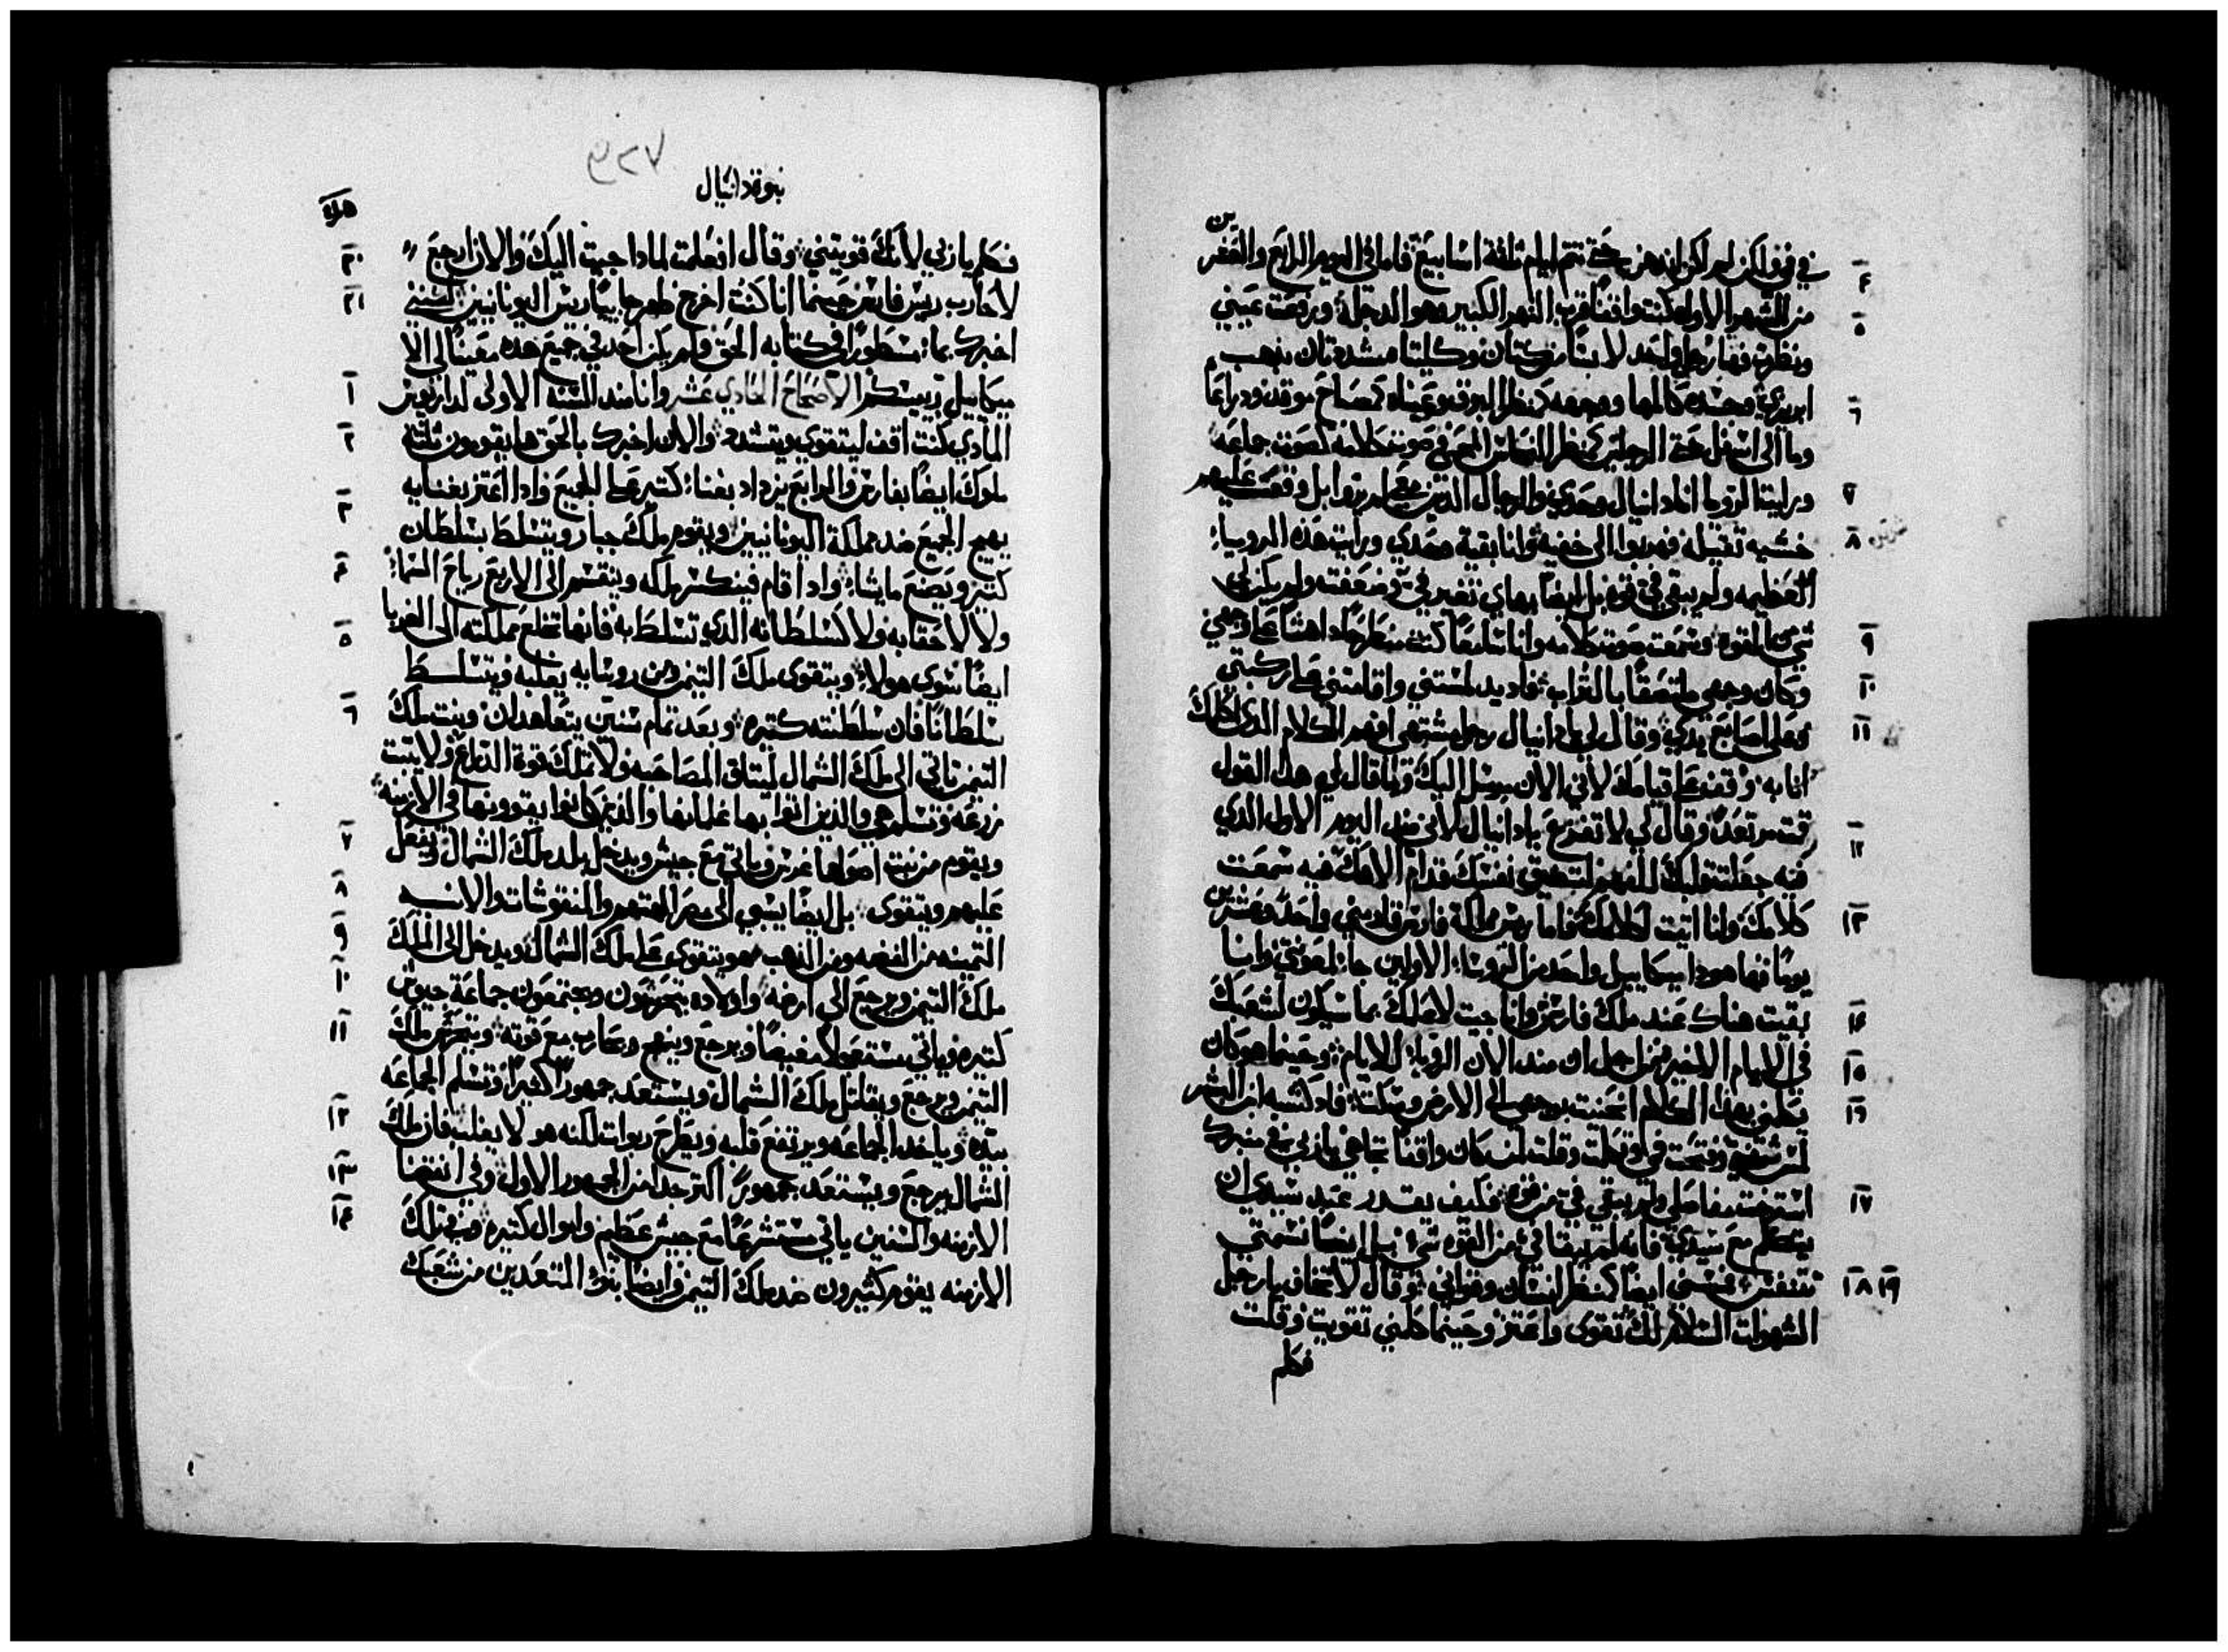 في فمي لكن ولم اكن ادهن حتى تتم ايام ثلثة اسابيع فاما في اليوم الرابع والعشرين
٤
من الشهر الاول كنت واقفًا قرب النهر الكبير وهو الدجلة ورفعت عيني
٥
ونظرت فهذا رجل واحد لابسًا من كتان وكليتاه مشدودتان بذهب
ابريزي وجسده كالمها ووجهه كمنظر البرق وعيناه كمصباح موقد ودراعاه
٦
وما الى اسفل حتى الرجلين كمنظر النحاس المحمي وصوت كلامه كصوت جماعه
ورايت الرويا انا دانيال وحدي والرجال الذين معي لم يروا بل وقعت عليهم
٧
خشيه تقيله فهربوا الى خفيه وانا بقية وحدي ورايت هذه الرويا
٨
العظيمه ولم يبقى في قوه بل ايضًا بهاي تغير في وضعفت ولم يكن لي
شي من القوه وسمعت صوت كلامه وانا سامعًا كنت منطرحًا داهشًا على وجهي
٩
وكان وجهي ملتصقًا بالتراب فاد يد لمستني واقامتني على ركبتي
١٠
وعلى اصابع يدي وقال لي يا دانيال رجل مشتهى افهم الكلام الذي اكلمك
١١
انا به وقف على قيامك لاني الان مرسل اليك ولما قال لي هذا القول
قمت مرتعدًا وقال لي لا تفزع يا دانيال لاني منذ اليوم الاول الذي
١٢
فيه جعلت قلبك للفهم لتضيق نفسك قدام الاهك فيه سمعت
كلامك وانا اتيت لكلامك فاما ريس مملكة فارس قاومني واحد وعشرين
١٣
يومًا فها هودا ميكاييل واحد من الروسا الاولين جا لمعونتي وانا
بقيت هناك عند ملك فارس وانا جيت لاعلمك بما سيكون لشعبك
١٤
في الايام الاخيره من اجل ان منذ الان الرويا للايام وحينما هو كان
١٥
يكلمني بهذا الكلام انحنيت بوجهي الى الارض وسكت فاد كشبه ابن البشر
١٦
لمس شفتي وفتحت في وتكلمت وقلت لمن كان واقفًا تجاهي يا ربي في منظرك
استرخت مفاصلي ولم يبقى في من قوه فكيف يقدر عبد سيدي ان
١٧
يتكلم مع سيدي فانه لم يبقا في من القوه شي بل ايضًا نسمتي
تتنفس فمسني ايضًا كمنظر انسان وقواني وقال لا تخاف يا رجل
١٨ ١٩
الشهوات السلام لك تقوى واعتز وحينما كلمني تقويت وقلت
فكلم
٧٢٩
نبوة دانيال
فكلم يا ربي لانك قويتني وقال افعلمت لمادا جيت اليك والان ارجع
٢٠
لاحارب ريس فارس حينما انا كنت اخرج ظهر جاييًا ريس اليونانيين لكنني
٢١
اخبرك بما مسطورًا في كتابه الحق ولم يكن احد في جميع هذه معينًا لي الا
ميكاييل رييسكم الاصحاح الحادي عشر وانا مند السنه الاولى لداريوس
١
المادي كنت اقف ليتقوى ويتشدد والان اخبرك بالحق ها يقومون ثلثة
٢
ملوك ايضًا بفارس والرابع يزداد بغنا كتير على الجميع واذا اعتز بغنايه
يهيج الجميع ضد مملكة اليونانيين ويقوم ملك جبار ويتسلط بسلطان
٣
كتير ويصنع ما يشا واذا قام فينكسر ملكه وينقسم الى الاربع رياح السما
٤
ولا لاعقابه ولا كسلطانه الذي تسلط به فانها تخلع مملكته الى الغربا
ايضًا سوى هولا ويتقوى ملك التيمن ومن روسايه يغلبه ويتسلط
٥
سلطانًا فان سلطنته كتيره وبعد تمام سنين يتعاهدان وبنت ملك
٦
التيمن تاتي الى ملك الشمال لميتاق المصاحبه ولا تملك قوة الدراع ولا يتبت
زرعه وتسلم هي والذين اتوا بها غلمانها والذين كانوا يقوونها في الازمنه
ويقوم من نبت اصولها غرس وياتي مع جيش ويدخل بلد ملك الشمال ويفعل
٧
عليهم ويتقوى بل ايضًا يسبي الى مصر الهتهم والمنقوشات والانيه
٨
التمينه من الفضه ومن الذهب هو يتقوى على ملك الشمال ويدخل الى الملك
٩
ملك التيمن ويرجع الى ارضه واولاده يتحرشون ويجتمعون جماعة جيوش
١٠
كتيره وياتي مستعجلًا مفيضًا ويرجع وينهج ويحارب مع قوته ويتحرش ملك
١١
التيمن ويرجع ويقاتل ملك الشمال ويستعد جمهورًا كثيرًا وتسلم الجماعه
بيده وياخد الجماعه ويرتفع قلبه ويطرح ربوات لكنه هو لا يغلب فان ملك
١٢
الشمال يرجع ويستعد جمهورًا اكتر جدا من الجمهور الاول وفي انتهنا
١٣
الازمنه والسنين ياتي مستسرعًا مع جيش عظيم واموال كتيره وفي تلك
١٤
الازمنه يقوم كثيرون ضد ملك التيمن وايضًا بنوا المتعدين من شعبك